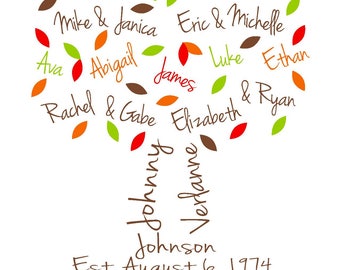 Mike & Janica
Eric & Michelle
Ava
Abigail
James
Luke
Ethan
Rachel & Gabe
Elizabeth & Ryan
Johnny
Verlanne
Johnson
Est. August 6, 1974